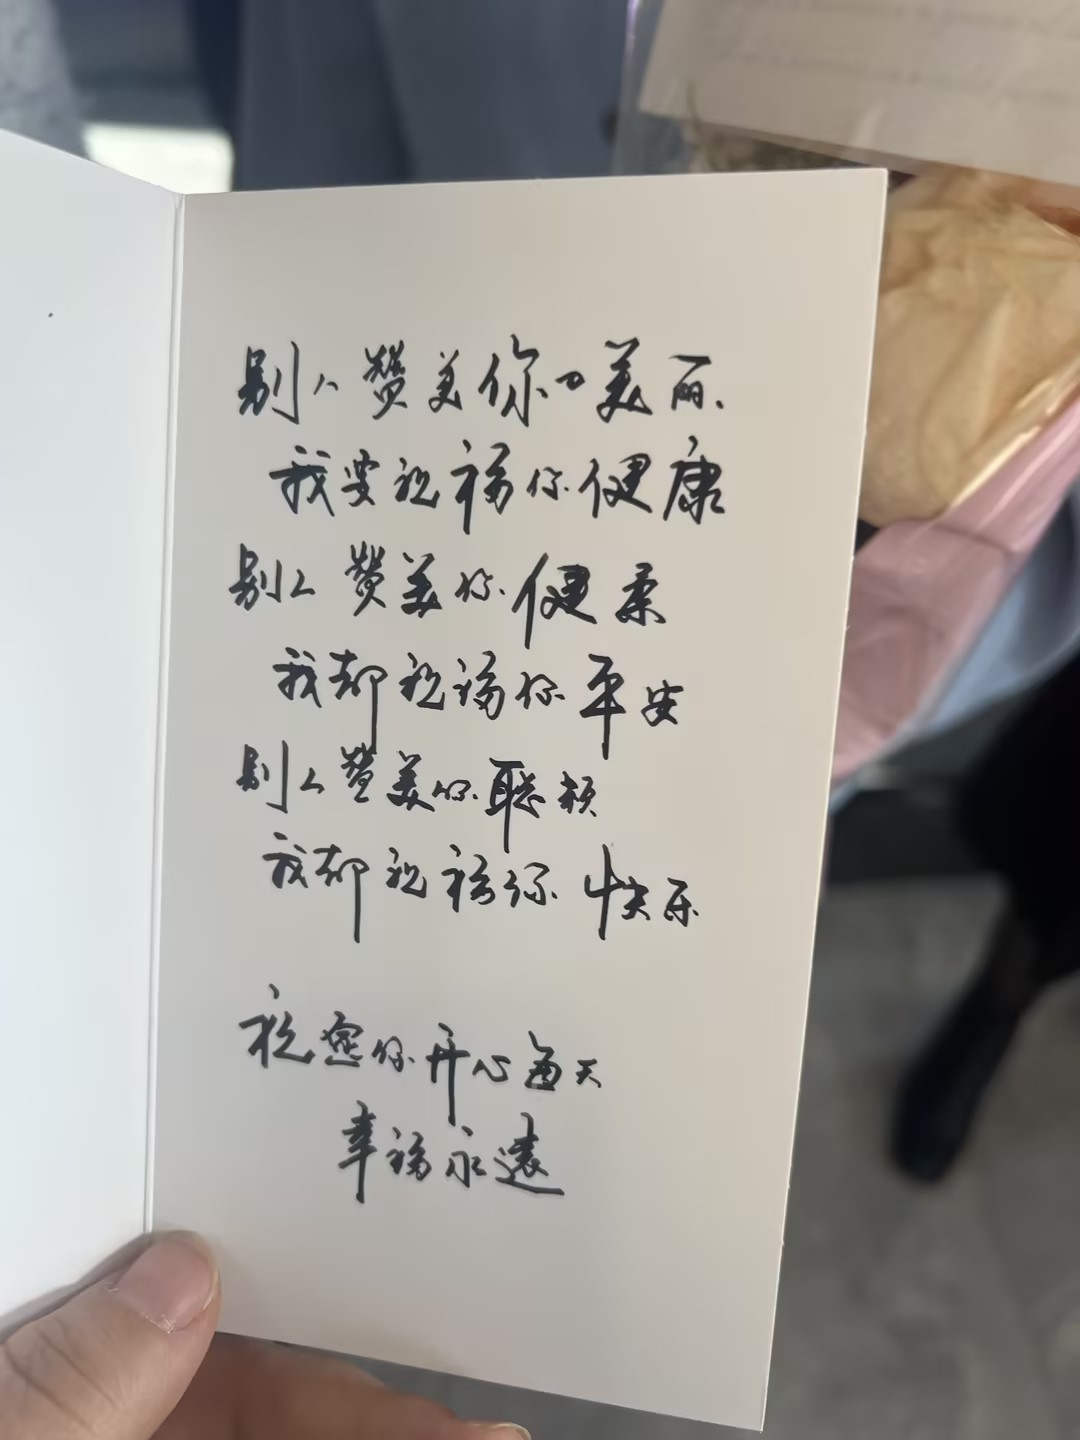 别人赞美你的美丽
我要祝福你健康
别人赞美你健柔
我却祝福你平安
别人赞美你聪颖
我却祝福你快乐
祝愿你开心每天
幸福永远